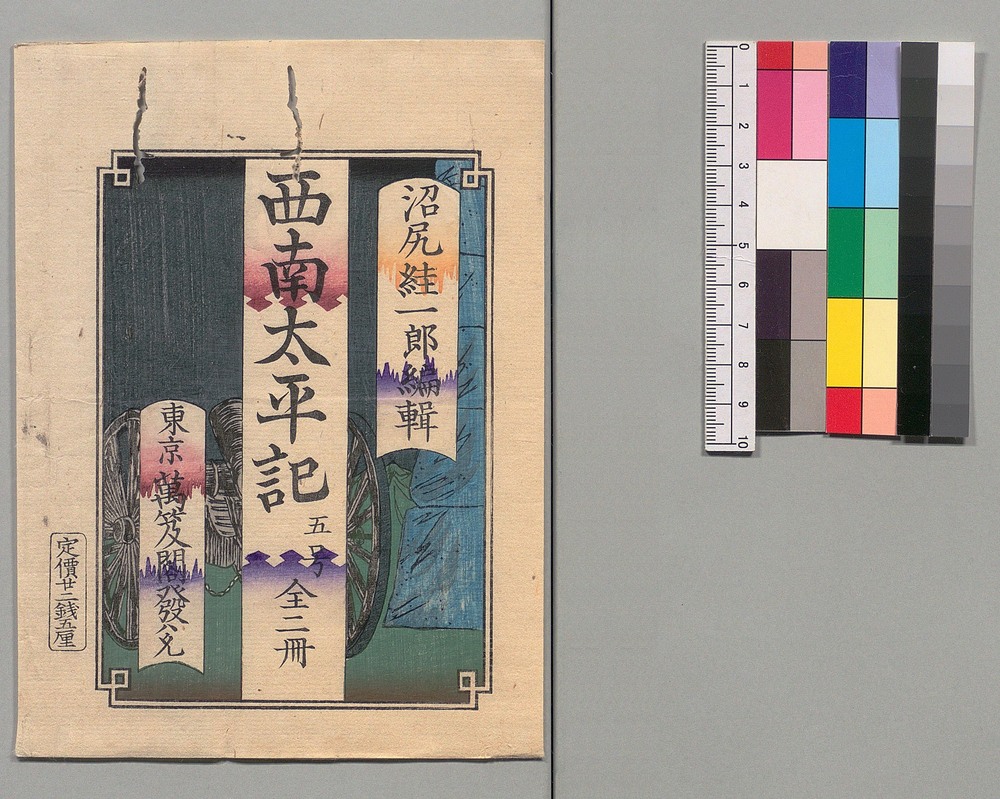 沼尻絓一郎編輯
西南太平記 五号 全二冊
東京 萬笈閣發兌
定價廿二銭五厘
0
1
2
3
4
5
6
7
8
9
10